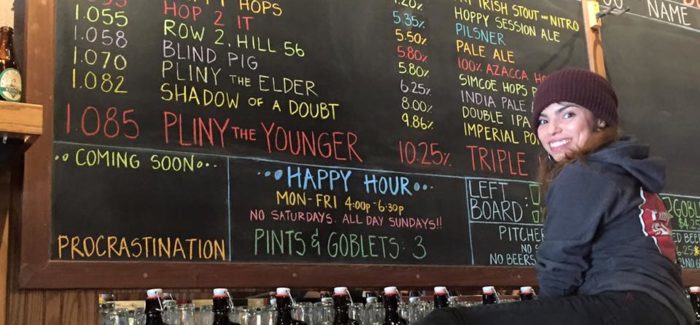 HAPPY HOPS
AN IRISH STOUT ON NITRO
NAME
1.055 HOP 2 IT 5.35% HOPPY SESSION ALE
1.055 ROW 2, HILL 56 5.50% PILSNER
1.058 BLIND PIG 5.80% PALE ALE
1.070 PLINY THE ELDER 5.80% 100% AZACCA HOP
1.082 SHADOW OF A DOUBT 6.25% SIMCOE HOPS
8.00% INDIA PALE
9.86% DOUBLE IPA
IMPERIAL
1.085 PLINY THE YOUNGER 10.25% TRIPLE
COMING SOON
PROCRASTINATION
HAPPY HOUR
MON-FRI 4:00P-6:30P
NO SATURDAYS. ALL DAY SUNDAYS!!
PINTS & GOBLETS: 3
LEFT
BOARD:
PITCHE
NO
NO BEERS
GOBL